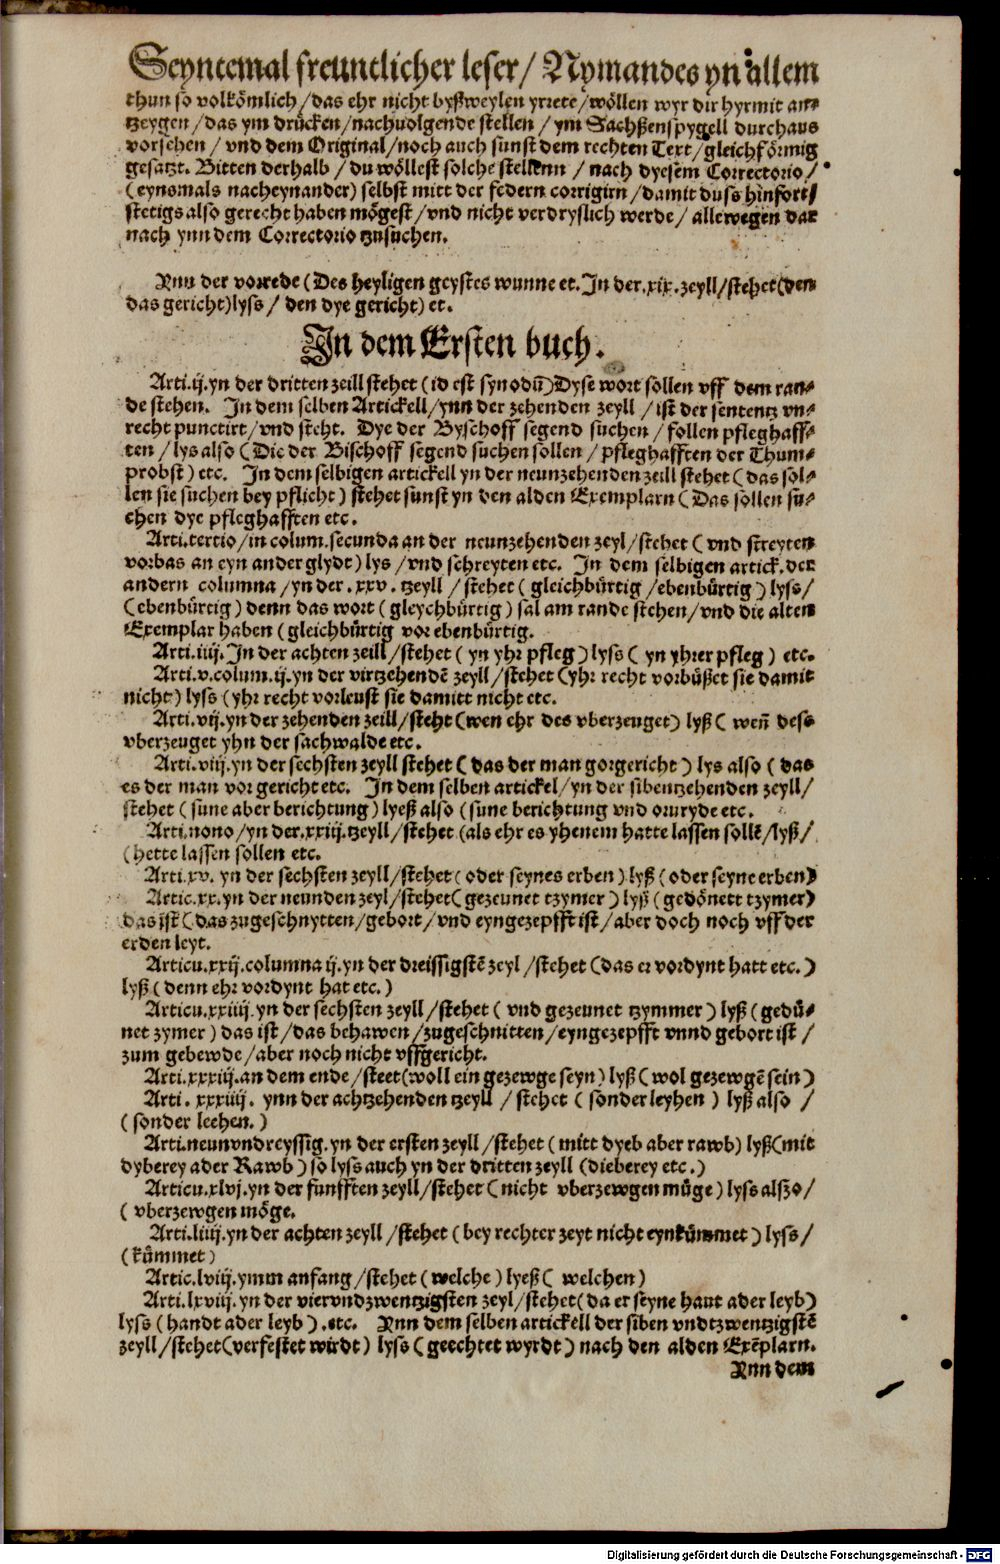 Seyntemal freuntlicher leser / Nymandes yn allem
thun so volkömlich / das ehr nicht byßweylen yrrete / wöllen wyr dir hyrmit an⸗
tzeygen / das ym drücken / nachuolgende stellen / ym Sachßenspygell durchaus
vorsehen / vnd dem Original / noch auch sunst dem rechten Text / gleichförmig
gesatzt. Bitten derhalb / du wöllest solche stellenn / nach dyesem Correctorio /
(eynsmals nacheynander) selbst mitt der federn corrigirn / damit duss hinfort /
stetigs also gerecht haben mögest / vnd nicht verdryslich werde / allewegen dar
nach ynn dem Correctorio tzusuchen.
Ynn der vorrede (Des heyligen geystes wunne et. In der .xix. zeyll / stehet (den
das gericht) lyss / den dye gericht) et.
In dem Ersten buch.
Arti.ij. yn der dritten zeill stehet (id est synodū) Dyse wort sollen vff dem ran⸗
de stehen. In dem selben Artickell / ynn der zehenden zeyll / ist der sententz vn⸗
recht punctirt / vnd steht. Dye der Byschoff segend suchen / sollen pfleghaff⸗
ten / lys also (Die der Bischoff segend suchen sollen / pfleghafften der Thum⸗
probst) etc. In dem selbigen artickell yn der neunzehenden zeill stehet (das sol⸗
len sie suchen bey pflicht) stehet sunst yn den alden Exemplarn (Das sollen su⸗
chen dye pfleghafften etc.
Arti.tertio / in colum. secunda an der neunzehenden zeyl / stehet (vnd streyten
vorbas an eyn ander glydt) lys / vnd schreyten etc. In dem selbigen artick. der
andern columna / yn der .xxv. tzeyll / stehet (gleichbürtig / ebenbürtig) lyss /
(ebenbürtig) denn das wort (gleychbürtig) sal am rande stehen / vnd die alten
Exemplar haben (gleichbürtig vor ebenbürtig.
Arti.iiij. In der achten zeill / stehet (yn yhr pfleg) lyss (yn yhrer pfleg) etc.
Arti.v.colum.ij. yn der virtzehendē zeyll / stehet (yhr recht vorbüßet sie damit
nicht) lyss (yhr recht vorleust sie damitt nicht etc.
Arti.vij. yn der zehenden zeill / steht (wen ehr des vberzeuget) lyß (weñ dess
vberzeuget yhn der sachwalde etc.
Arti.viij. yn der sechsten zeyll stehet (das der man gorgericht) lys also (das
es der man vor gericht etc. In dem selben artickel / yn der sibentzehenden zeyll /
stehet (sune aber berichtung) lyeß also (sune berichtung vnd oruryde etc.
Arti.nono / yn der .xxiij. tzeyll / stehet (als ehr es yhenem hatte lassen sollē / lyß /
(hette lassen sollen etc.
Arti.xv. yn der sechsten zeyll / stehet (oder seynes erben) lyß (oder seyne erben)
Artic.xx. yn der neunden zeyl / stehet (gezeunet tzymer) lyß (gedönett tzymer)
das ist (das zugeschnytten / gebort / vnd eyngezepfft ist / aber doch noch vff der
erden leyt.
Articu.xxij. columna ij. yn der dreissigstē zeyl / stehet (das er vordynt hatt etc.)
lyß (denn ehr vordynt hat etc.)
Articu.xxiiij. yn der sechsten zeyll / stehet (vnd gezeunet tzymmer) lyß (gedü⸗
net zymer) das ist / das behawen / zugeschnitten / eyngezepfft vnnd gebort ist /
zum gebewde / aber noch nicht vffgericht.
Arti.xxxiij. an dem ende / steet (woll ein gezewge seyn) lyß (wol gezewgē sein)
Arti. xxxiiij. ynn der achtzehenden tzeyll / stehet (sonder leyhen) lyß also /
(sonder leehen.)
Arti.neunvndreyssig. yn der ersten zeyll / stehet (mitt dyeb aber rawb) lyß (mit
dyberey ader Rawb) so lyss auch yn der dritten zeyll (dieberey etc.)
Articu.xlvj. yn der funfften zeyll / stehet (nicht vberzewgen müge) lyss alßo /
(vberzewgen möge.
Arti.liiij. yn der achten zeyll / stehet (bey rechter zeyt nicht eynkümmet) lyss /
(kümmet)
Artic.lviij. ymm anfang / stehet (welche) lyeß (welchen)
Arti.lxviij. yn der viervndzwentzigsten zeyl / stehet (da er seyne haut ader leyb)
lyss (handt ader leyb) .etc. Ynn dem selben artickell der siben vndtzwentzigstē
zeyll / stehet (verfestet wirdt) lyss (geechtet wyrdt) nach den alden Exēplarn.
Ynn dem
Digitalisierung gefördert durch die Deutsche Forschungsgemeinschaft - DFG